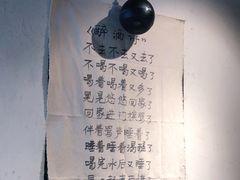 《醉酒诗》
不去不去又去了
不喝不喝又喝了
喝着喝着又多了
晃晃悠悠回家了
回家进门挨骂了
伴着骂声睡着了
睡着睡着渴醒了
喝完水后又睡了